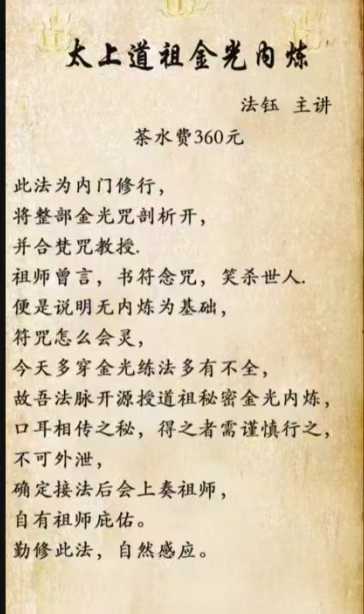 太上道祖金光内炼
法钰 主讲
茶水费360元
此法为内门修行，
将整部金光咒剖析开，
并合梵咒教授.
祖师曾言，书符念咒，笑杀世人.
便是说明无内炼为基础，
符咒怎么会灵，
今天多穿金光练法多有不全，
故吾法脉开源授道祖秘密金光内炼，
口耳相传之秘，得之者需谨慎行之，
不可外泄，
确定接法后会上奏祖师，
自有祖师庇佑。
勤修此法，自然感应。